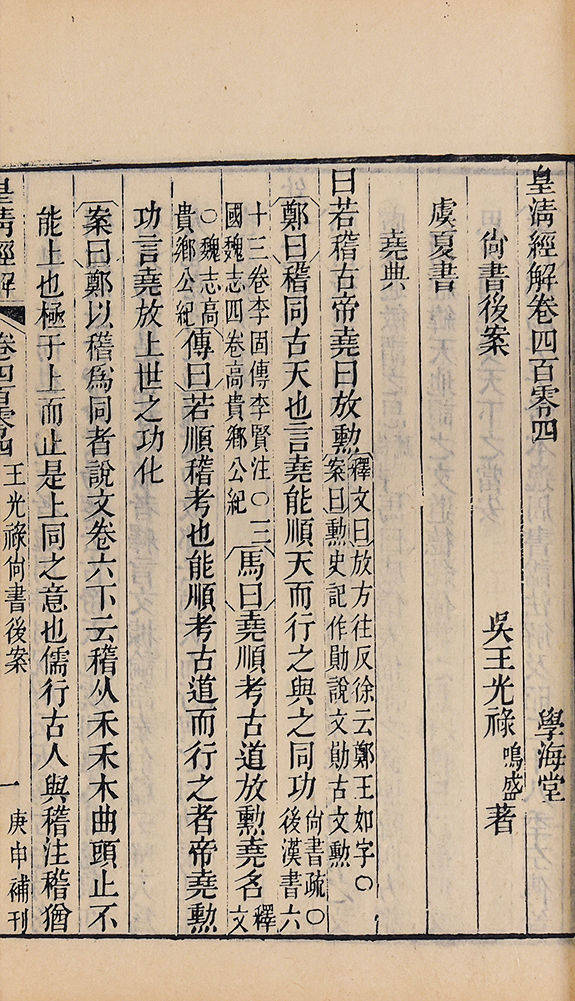 皇清經解卷四百零四　學海堂
尙書後案　吳王光祿鳴盛著
虞夏書
堯典
曰若稽古帝堯曰放勲釋文曰放方往反徐云鄭王如字〇案曰勲史記作勛說文勛古文勲
鄭曰稽同古天也言堯能順天而行之與之同功尙書疏〇後漢書六
十三卷李固傳李賢注〇三國魏志四卷高貴鄉公紀馬曰堯順考古道放勲堯名釋文
〇魏志高貴鄉公紀傳曰若順稽考也能順考古道而行之者帝堯勲
功言堯放上世之功化
案曰鄭以稽爲同者說文卷六下云稽从禾禾木曲頭止不
能上也極于上而止是上同之意也儒行古人與稽注稽猶
皇清經解　卷四百零四　王光祿尙書後案　一　庚申補刊